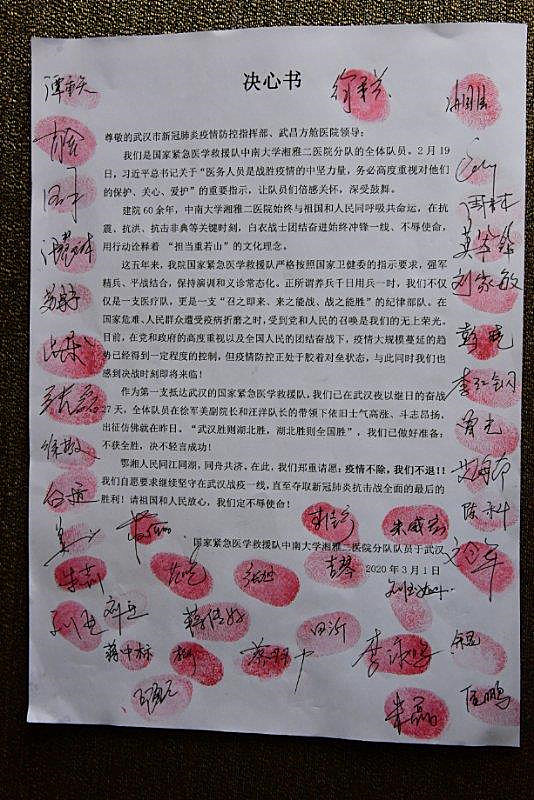 决心书
尊敬的武汉市新冠肺炎疫情防控指挥部、武昌方舱医院领导:
我们是国家紧急医学救援队中南大学湘雅二医院分队的全体队员。2 月 19
日,习近平总书记关于“医务人员是战胜疫情的中坚力量,务必高度重视对他们
的保护、关心、爱护”的重要指示,让队员们倍感关怀,深受鼓舞。
建院 60 余年,中南大学湘雅二医院始终与祖国和人民同呼吸共命运,在抗
震、抗洪、抗击非典等关键时刻,白衣战士团结奋进始终冲锋一线、不辱使命,
用行动诠释着“担当重若山”的文化理念。
这五年来,我院国家紧急医学救援队严格按照国家卫健委的指示要求,强军
精兵、平战结合,保持演训和义诊常态化。正所谓养兵千日用兵一时,我们不仅
仅是一支医疗队,更是一支“召之即来、来之能战、战之能胜”的纪律部队。在
国家危难、人民群众遭受疫病折磨之时,受到党和人民的召唤是我们的无上荣光。
目前,在党和政府的高度重视以及全国人民的团结奋战下,疫情大规模蔓延的趋
势已经得到一定程度的控制,但疫情防控正处于胶着对垒状态,与此同时我们也
感到决战时刻即将来临!
作为第一支抵达武汉的国家紧急医学救援队,我们已在武汉夜以继日的奋战
27 天,全体队员在徐军美副院长和汪洋队长的带领下依旧士气高涨、斗志昂扬,
出征仿佛就在昨日。“武汉胜则湖北胜,湖北胜则全国胜”,我们已做好准备:
不获全胜,决不轻言成功!
鄂湘人民同江同湖,同舟共济,在此,我们郑重请愿:疫情不除,我们不退!!
我们自愿要求继续坚守在武汉战疫一线,直至夺取新冠肺炎抗击战全面的最后的
胜利!请祖国和人民放心,我们定不辱使命!
国家紧急医学救援队中南大学湘雅二医院分队队员于武汉
2020 年 3 月 1 日
刘家敏
李红钢
朱威
朱莉
吉琴
田沂
蒋中标
朱磊
伍鹏